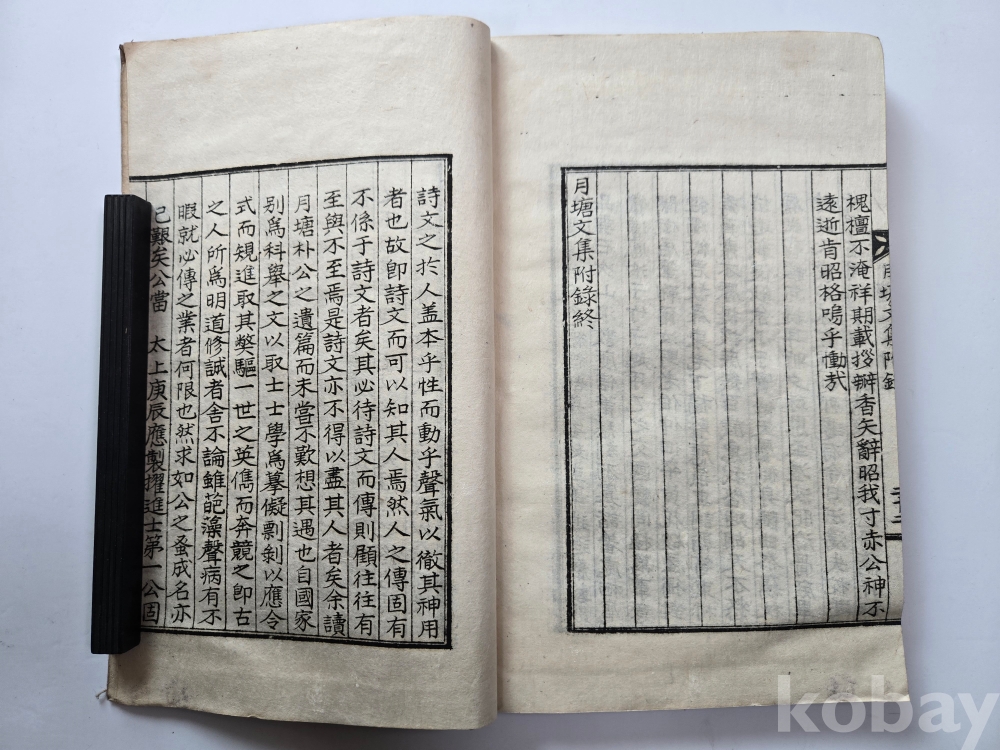 槐檀不淹祥期載撥瓣香矢辭昭我寸赤公神不
遠逝肯昭格嗚乎慟哉
月塘文集附錄終
月塘文集附錄
二十三
詩文之於人盖本乎性而動乎聲氣以徹其神用
者也故卽詩文而可以知其人焉然人之傳固有
不係于詩文者矣其必待詩文而傳則顧往往有
至與不至焉是詩文亦不得以盡其人者矣余讀
月塘朴公之遺篇而未嘗不歎想其遇也自國家
別爲科擧之文以取士士學爲摹儗剽剝以應令
式而規進取其獘驅一世之英儁而奔競之卽古
之人所爲明道修誠者舍不論雖葩藻聲病有不
暇就必傳之業者何限也然求如公之蚤成名亦
已艱矣公當 太上庚辰應製擢進士第一公固
kobay